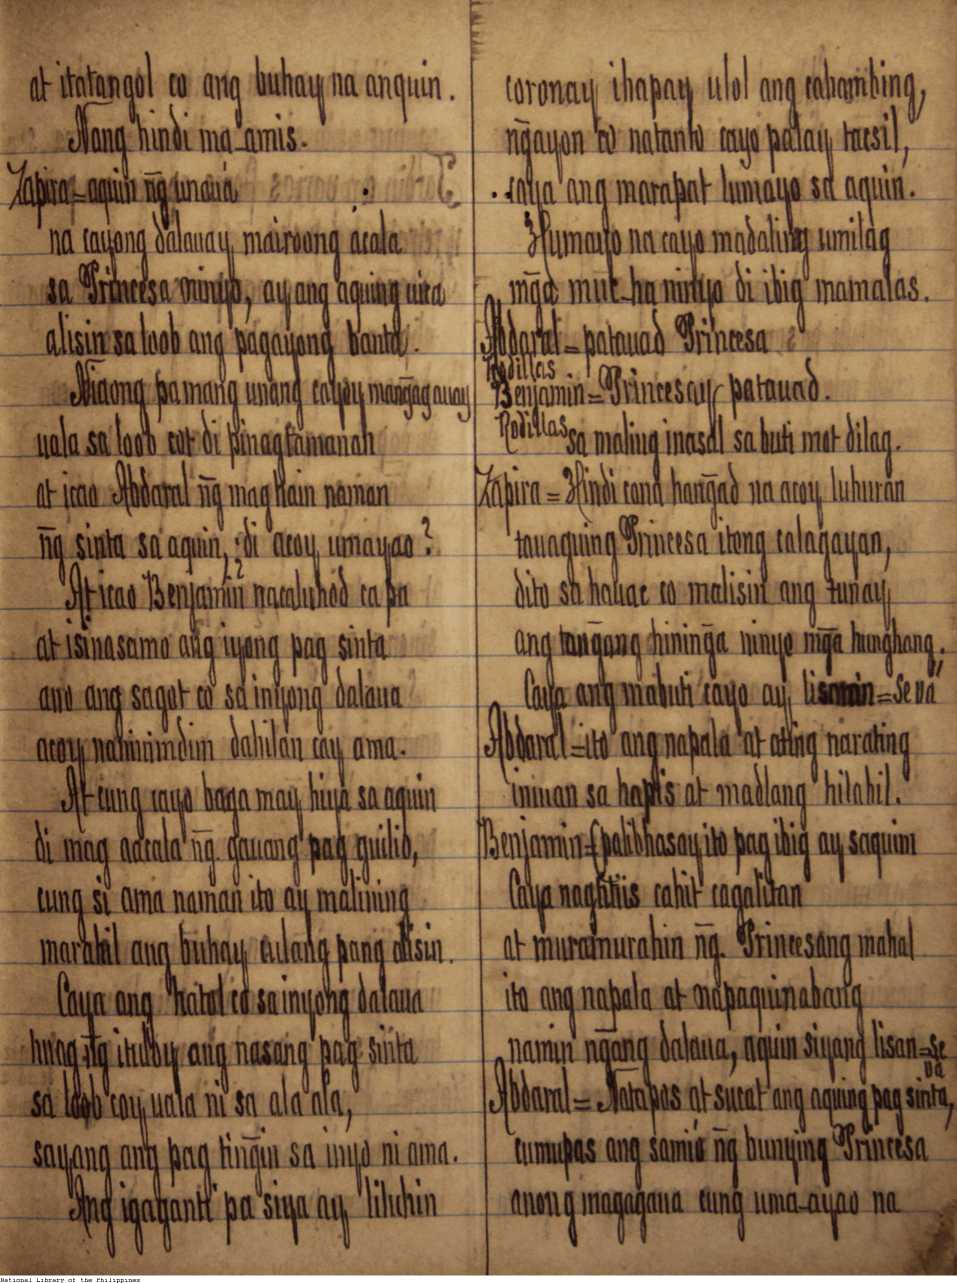 at itatangol co ang buhay na anquin.
Nang hindi ma-amis.
Zapira = aquin n̄g unaua
na cayong dalauay mairoong acala
sa Princesa ninyo, ay ang aquing uica
alisin sa loob ang pagayong banta.
Niaong pamang unang cayoy man̄gagauay
uala sa loob cot di pinagtamanan
at icao Abdaral n̄g maghain naman
n̄g sinta sa aquin, di acoy umayao?
At icao Benjamin nacaluhod ca pa
at isinasamo ang iyong pag sinta
ano ang sagot co sa inyong dalaua
acoy naninimdim dahilan cay ama.
At cung cayo baga may hiya sa aquin
di mag adcala n̄g. gauang pag guilio,
cung si ama naman ito ay malining
marahil ang buhay culang pang alisin.
Caya ang hatol co sa inyong dalaua
huag n̄g ituloy ang nasang pag sinta
sa loob coy uala ni sa ala ala,
sayang ang pag tin̄gin sa inyo ni ama.
Ang igaganti pa siya ay liluhin
coronay ihapay ulol ang cahambing,
n̄gayon co natanto cayo palay tacsil,
caya ang marapat lumayo sa aquin.
Humayo na cayo madaling umilag
m̄ga mut-ha ninyo di ibig mamalas.
Abdaral = patauad Princesa
Rodillas
Benjamin = Princesay patauad.
Rodillas
sa maling inasal sa buti mot dilag.
Zapira = Hindi cona han̄gad na acoy luhuran
tauaguing Princesa itong calagayan,
dito sa haliac co malisin ang tunay
ang tan̄gang hinin̄ga ninyo m̄ga hunghang.
Caya ang mabuti cayo ay lisanin = se va
Abdaral = ito ang napala at ating narating
ininan sa hapis at madlang hilahil.
Benjamin = palibhasay ito pag ibig ay saquim
Caya nagtitiis cahit cagalitan
at muramurahin n̄g. Princesang mahal
ito ang napala at napaquinabang
namin n̄gang dalaua, aquin siyang lisan = se va
Abdaral = Natapas at sucat ang aquing pag sinta,
cumupas ang samio n̄g bunying Princesa
anong magagaua cung uma-ayao na
National Library of the Philippines